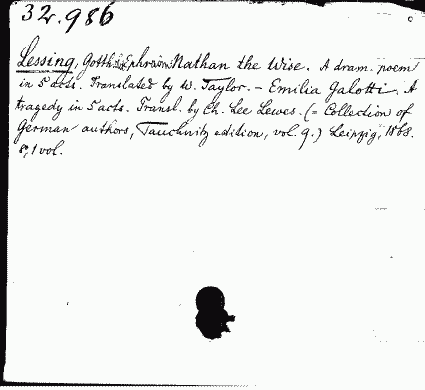 32.986
Lessing, Gotth. Ephraim: Nathan the Wise. A dram. poem
in 5 acts. Translated by W. Taylor. – Emilia Galotti. A
tragedy in 5 acts. Transl. by Ch. Lee Lewes. (= Collection of
German authors, Tauchnitz edition, vol. 9.) Leipzig, 1868.
8, 1 vol.